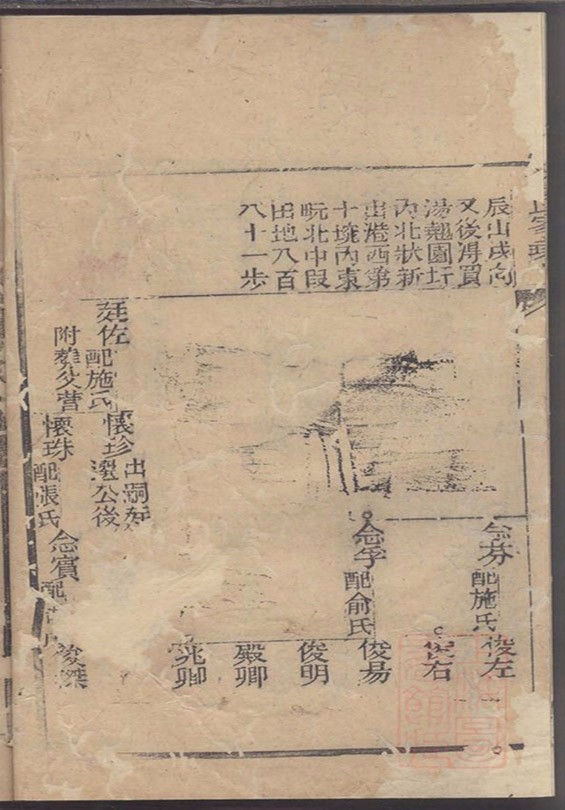 辰山戌向
又後得買
湯翹園圩
內北狀新
出港西第
十坵內東
畹北中段
田地八百
八十一步
念芬
配施氏
俊左
俊右
念孚
配俞氏
俊易
俊明
殿卿
兆卿
廷佐
配施氏
附葬父塋
懷珍
出嗣
選公後
懷珠
配張氏
念賓
配
俊傑